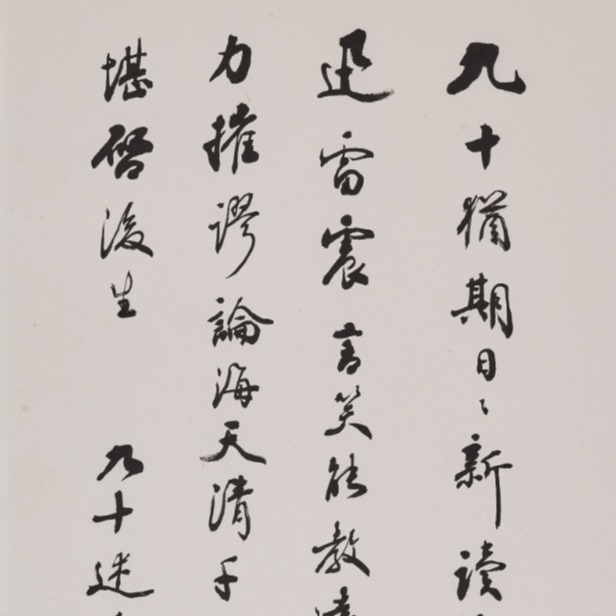 九十猶期日〻新讀
迅雷震音笑能教
力摧謬論海天清千
堪啓後生
九十述